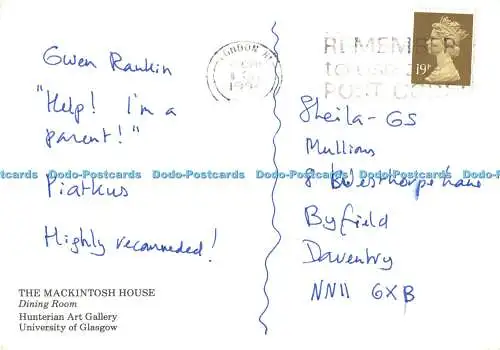 Gwen Rankin
"Help! I'm a
parent!"
Piatkus
Highly recommended!
THE MACKINTOSH HOUSE
Dining Room
Hunterian Art Gallery
University of Glasgow
LONDON
REMEMBER
to use
POST CODE
19P
Sheila - GS
Mullions
8 Westhorpe Lane
Byfield
Daventry
NN11 6XB
Dodo-Postcards Dodo-Postcards Dodo-Postcards Dodo-Postcards